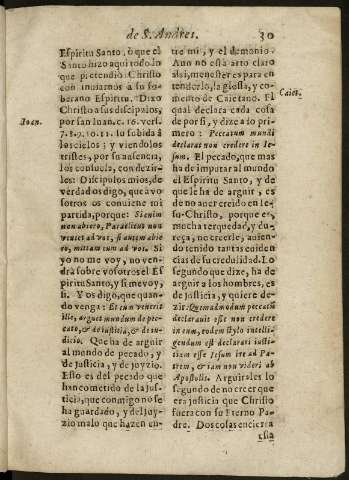 de S. Andres.
30
Espiritu Santo, ò que el
Santo hizo aqui todo lo
que pretendió Christo
con imbiarnos a su so-
berano Espiritu. Dixo
Christo a sus discipulos,
por san Iuan. c. 16. vers.
7.8.9.10.11. su subida à
los cielos; y viendolos
tristes, por su ausencia,
los consuela, con dezir-
les: Discipulos mios, de
verdad os digo, que à vo
sotros os conuiene mi
partida, porque: Si enim
non abiero, Paraclitus non
veniet ad vos, si autem abie
ro, mittam eum ad vos. Si
yo no me voy, no ven-
drà sobre vosotros el Es
piritu Santo, y si me voy,
si. Y os digo, que quan-
do venga: Et cum venerit
ille, arguet mundum de pec-
cato, & de iusticia, & de iu-
dicio. Que ha de arguir
al mundo de pecado, y
de justicia, y de juyzio.
Esto es del pecado que
han cometido de la jus-
ticia, que conmigo no se
ha guardado, y del juy-
zio malo que hazen en-
Ioan.
tre mi, y el demonio.
Aun no està arto claro
assi, menester es para en
tenderlo, la glossa, y co-
mento de Caietano. El
qual declara cada cosa
de por si, y dize a lo pri-
mero: Peccatum mundi
declarat non credere in Ie-
sum. El pecado, que mas
ha de imputar al mundo
el Espiritu Santo, y de
que le ha de arguir, es
de no auer creido en Ie-
su-Christo, porque es,
mucha terquedad, y du-
reça, no creerle, auien-
do tenido tantas euiden
cias de su credulidad. Lo
segundo que dize, ha de
arguir a los hombres, es
de justicia, y quiere de-
zir: Quemadmodum peccatũ
declarauit esse non credere
in eum, eodem stylo intelli-
gendum est declarari iusti-
tiam esse Iesum ire ad Pa-
trem, & iam non videri ab
Apostolis. Arguirales lo
segundo de no creer que
era justicia que Christo
fuera con su Eterno Pa-
dre. Dos cosas encierra
esta
Caiet.